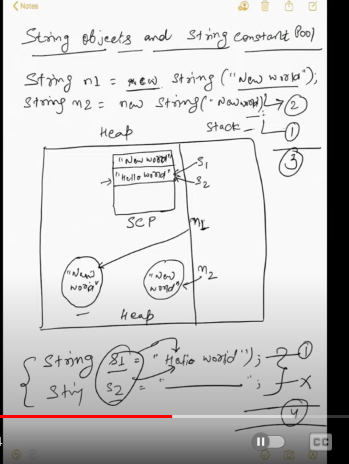 Notes
String objects and String constant Pool
String n1 = new String ("New world");
String n2 = new String("New world
2
Heap
Stack
1
3
"New world"
"Hello world"
S1
S2
SCP
n1
"New world"
"New world"
n2
Heap
String S1 = "Hello world"); 1
S2 = " "; x
4
CC